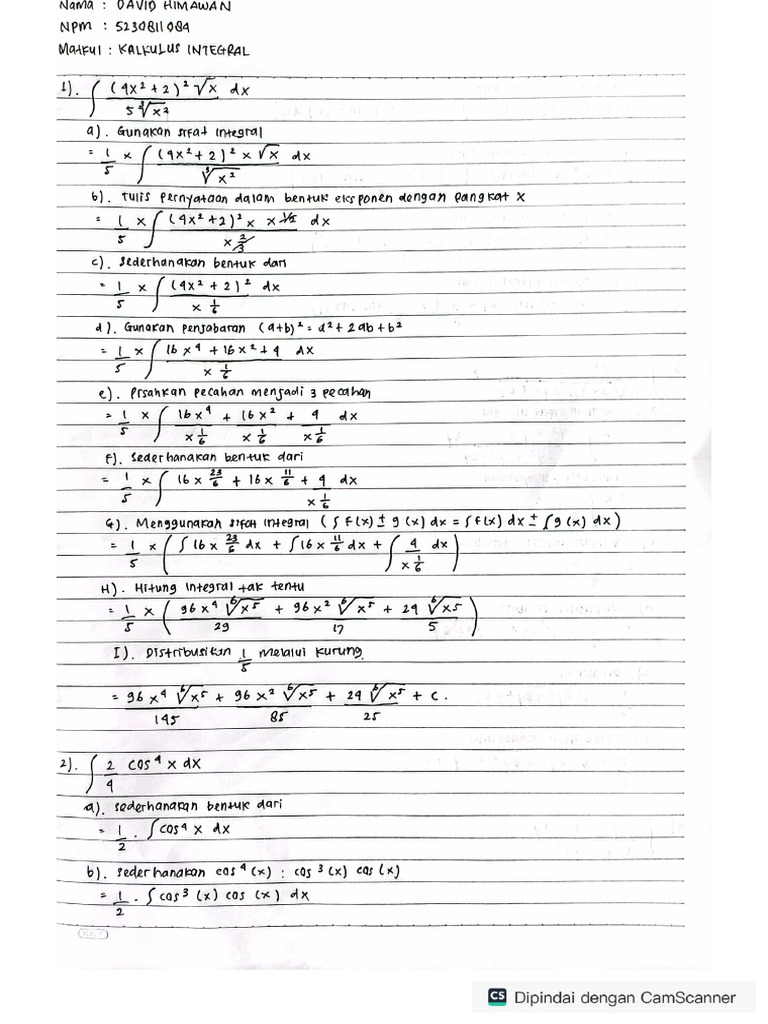 Nama : DAVID HIMAWAN
NPM : 5230811084
Matkul : KALKULUS INTEGRAL
1). ∫ (4x² + 2)² √x / 5 ∛x² dx
a). Gunakan sifat integral
= 1/5 × ∫ (4x² + 2)² × √x / ∛x² dx
b). Tulis pernyataan dalam bentuk eksponen dengan pangkat x
= 1/5 × ∫ (4x² + 2)² × x^1/2 / x^2/3 dx
c). Sederhanakan bentuk dari
= 1/5 × ∫ (4x² + 2)² / x^1/6 dx
d). Gunakan penjabaran (a+b)² = a² + 2ab + b²
= 1/5 × ∫ 16x⁴ + 16x² + 4 / x^1/6 dx
e). Pisahkan pecahan menjadi 3 pecahan
= 1/5 × ∫ 16x⁴ / x^1/6 + 16x² / x^1/6 + 4 / x^1/6 dx
F). Sederhanakan bentuk dari
= 1/5 × ∫ 16x^23/6 + 16x^11/6 + 4 / x^1/6 dx
G). Menggunakan sifat integral (∫ f(x) ± g(x) dx = ∫ f(x) dx ± ∫ g(x) dx)
= 1/5 × (∫ 16x^23/6 dx + ∫ 16x^11/6 dx + ∫ 4 / x^1/6 dx)
H). Hitung integral tak tentu
= 1/5 × (96x⁴ ⁶√x⁵ / 29 + 96x² ⁶√x⁵ / 17 + 24 ⁶√x⁵ / 5)
I). Distribusikan 1/5 melalui kurung
= 96x⁴ ⁶√x⁵ / 145 + 96x² ⁶√x⁵ / 85 + 24 ⁶√x⁵ / 25 + c.
2). ∫ 2/4 cos⁴ x dx
a). sederhanakan bentuk dari
= 1/2 . ∫ cos⁴ x dx
b). sederhanakan cos⁴ (x) : cos³ (x) cos (x)
= 1/2 . ∫ cos³ (x) cos (x) dx
CS Dipindai dengan CamScanner